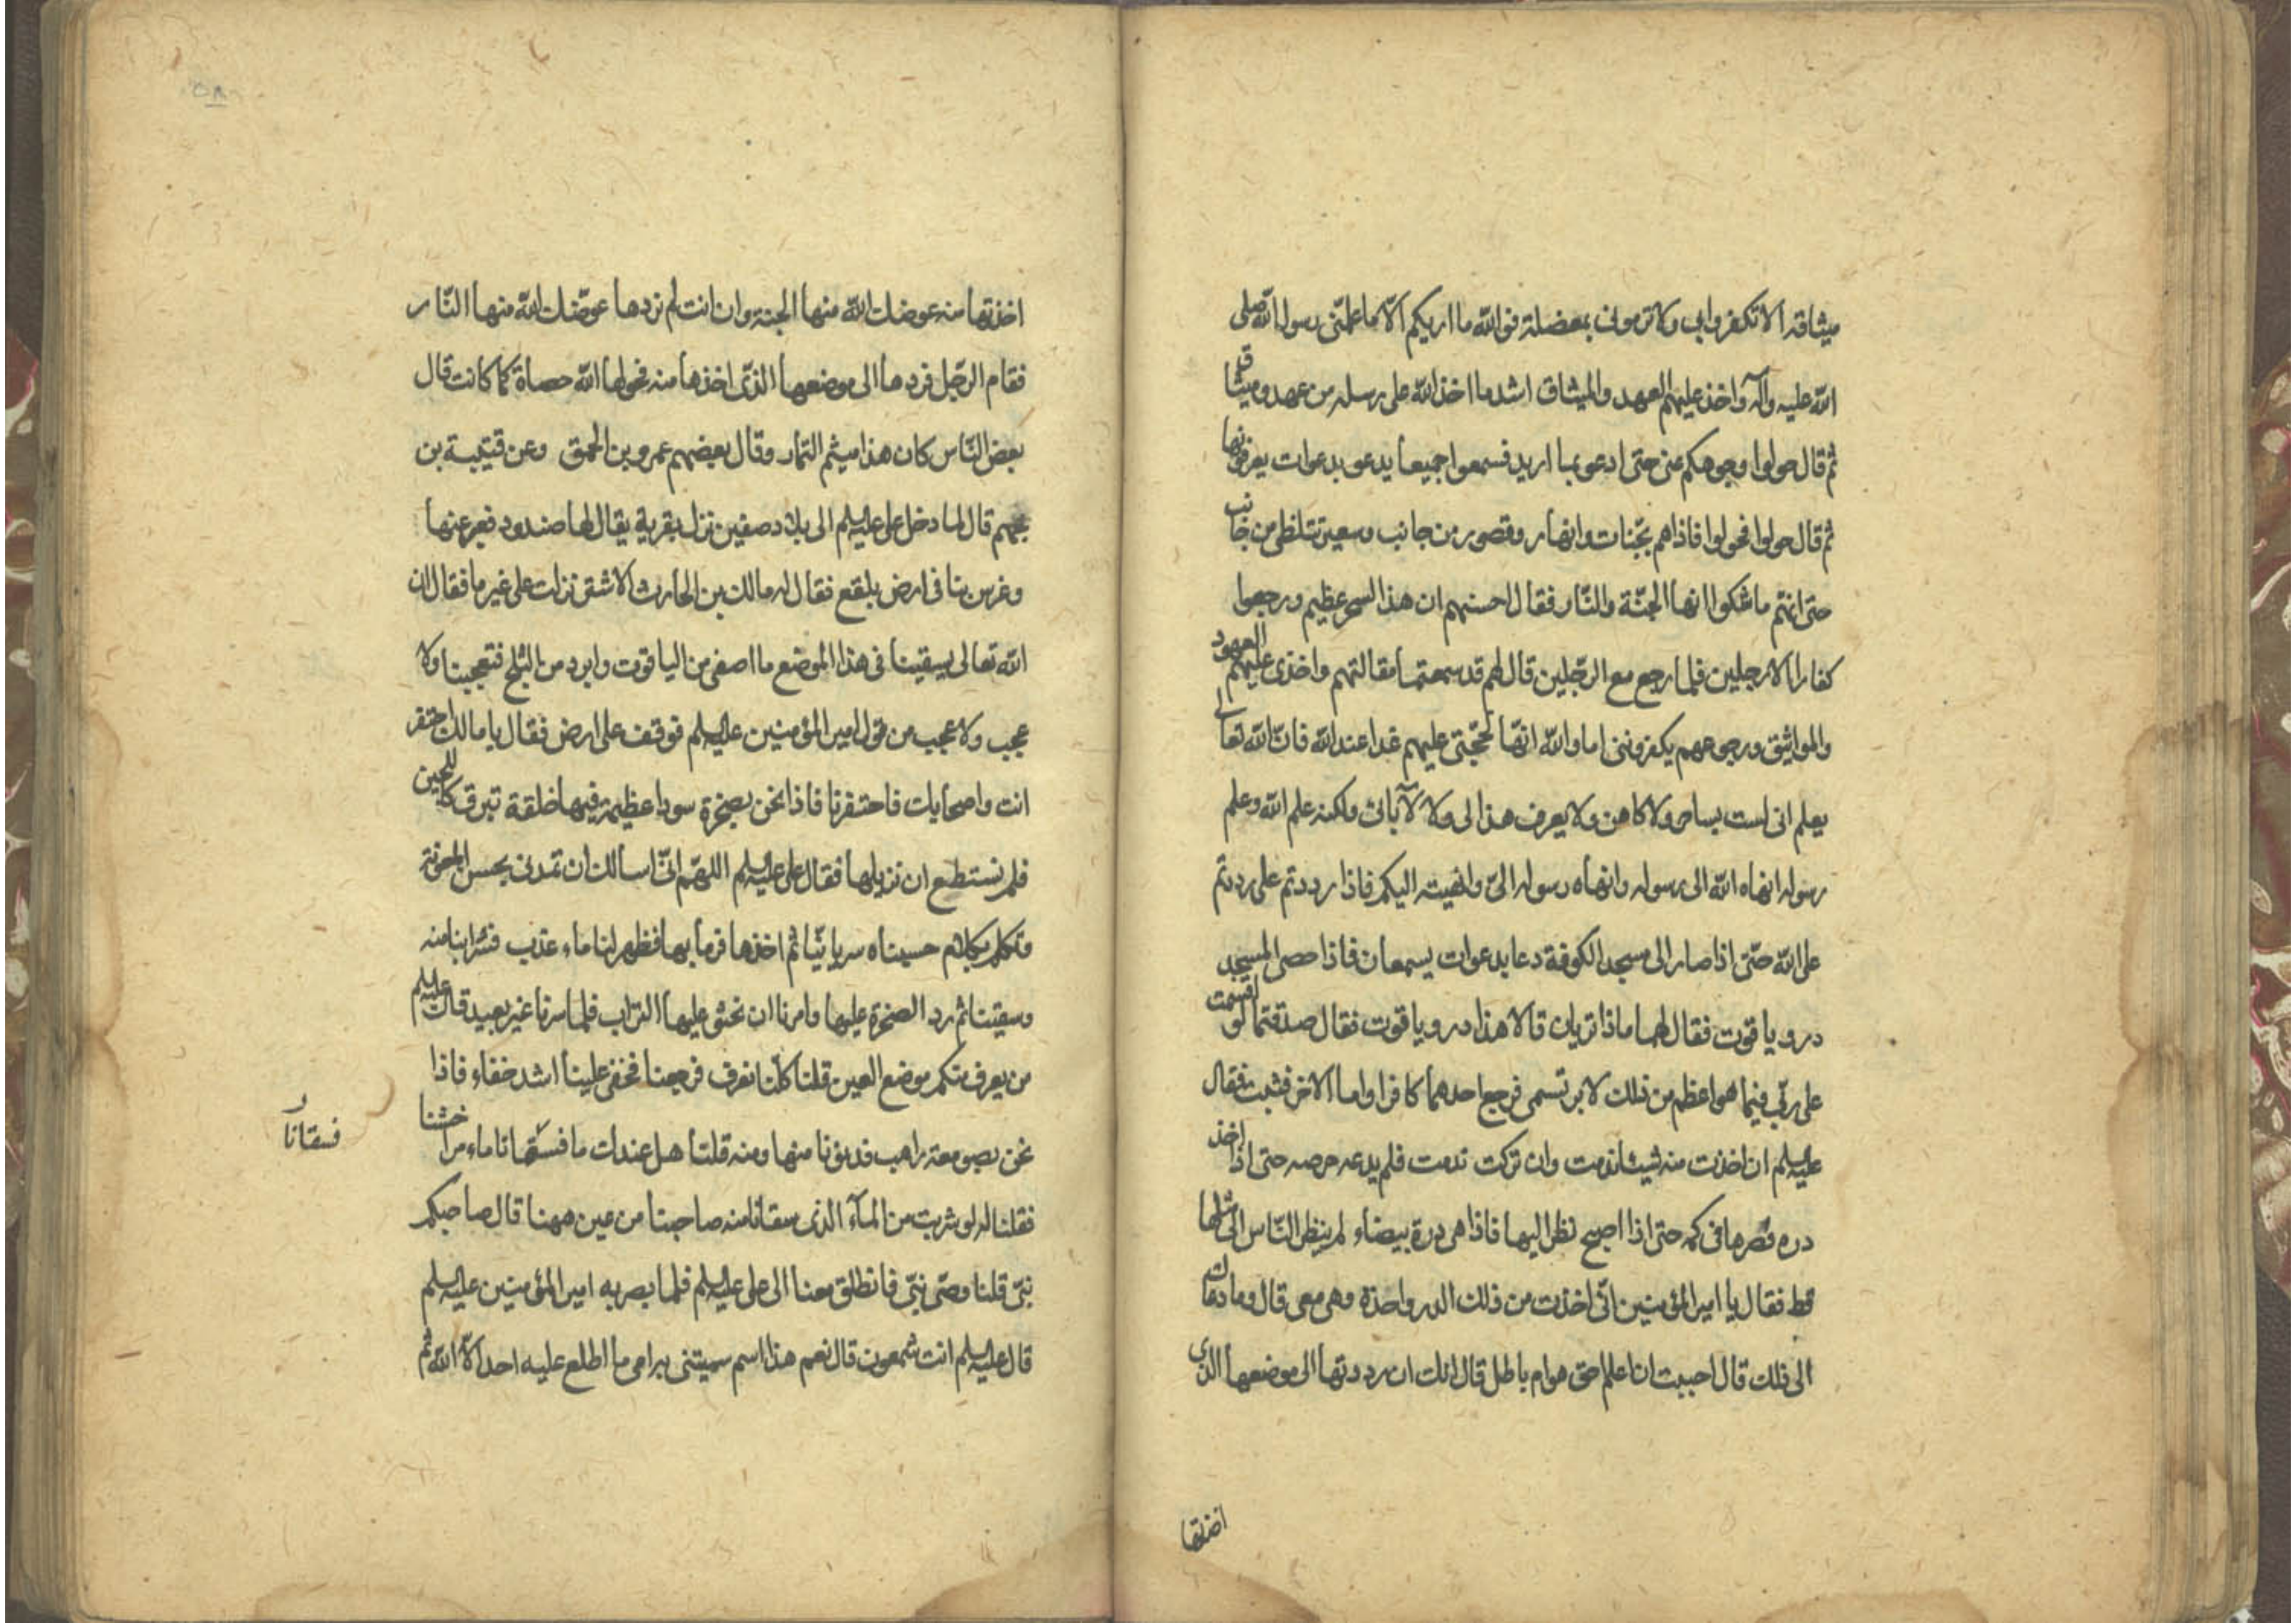 ميثاقه الا تكفروا بي ولا ترموني بمعضلة فوالله ما اريكم الّا ما علمّنى رسول الله صلى
الله عليه وآله واخذ عليهم العهد والميثاق اشد ما اخذ الله على رسله من عهد وميثاقه
ثم قال حولوا وجوهكم عنى حتى ادعو بما اريد فسمعوا جميعا يدعو بدعوات يعرفونها
ثم قال حولوا فحولوا فاذا هم بجّنات وانهار وقصور من جانب وسعير تتلظى من جانب
حتى انهم ما شكوا انها الجنّة والنّار فقال احسنهم ان هذا لسحر عظيم ورجعوا
كفارا الا رجلين فلما رجع مع الرّجلين قال لهم قد سمعتما مقالتهم واخذى عليهم العهود
والمواثيق ورجوعهم يكفروننى اما والله انّها لحجّتى عليهم غدا عند الله فانّ الله تعالى
يعلم انى لست بساحر ولا كاهن ولا يعرف هذا لى ولا لآبائى ولكنه علم الله وعلم
رسوله انهاه الله الى رسوله وانهاه رسوله الىّ وانهيته اليكم فاذا رددتم على رددتم
على الله حتّى اذا صار الى مسجد الكوفة دعا بدعوات يسمعان فاذا حصى المسجد
در وياقوت فقال لهما ماذا تريان قالا هذا در وياقوت فقال صدقتما لو اقسمت
على ربّى فيما هو اعظم من ذلك لابر قسمى فرجع احدهما كافرا واما الاخر فثبت فقال
عليه السلم ان اخذت منه شيئا ندمت وان تركت ندمت فلم يدعه حرصه حتى اذا اخذ
دره فصرها فى كمه حتى اذا اصبح نظر اليها فاذا هى درة بيضاء لم ينظر النّاس الى مثلها
قط فقال يا امير المؤمنين انّى اخذت من ذلك الدر واحدة وهى معى قال وما دعاك
الى ذلك قال احببت ان اعلم احق هو ام باطل قال انك ان رددتها الى موضعها الذي
اخذتها
اخذتها منه عوضك الله منها الجنة وان انت لم تردها عوّضك الله منها النّار
فقام الرّجل فردها الى موضعها الذّى اخذها منه فحولها الله حصاة كما كانت قال
بعض النّاس كان هذا ميثم التمّار وقال بعضهم عمرو بن الحمق وعن قتيبة بن
جهم قال لما دخل على عليه السلم الى بلاد صفين نزل بقرية يقال لها صندود فعبر عنها
وعرس بنا فى ارض بلقع فقال له مالك بن الحارث الاشتر نزلت على غير ما فقال ان
الله تعالى يسقينا فى هذا الموضع ما اصفى من الياقوت وابرد من الثلج فتعجبنا ولا
عجب ولا عجب من قول امير المؤمنين عليه السلم فوقف على ارض فقال يا مالك احتفر
انت واصحابك فاحتفرنا فاذا نحن بصخرة سودا عظيمة فيها خلقة تبرق كاللجين
فلم نستطع ان نزيلها فقال على عليه السلم اللهّم انّى اسالك ان تمدنى بحسن المعونة
وتكلم بكلام حسبناه سريانيّا ثم اخذها فرما بها فظهر لنا ماء عذب فشرابنا منه
وسقينا ثم رد الصخرة عليها وامرنا ان نحثو عليها التراب فلما سرنا غير بعيد قال عليه السلم
من يعرف منكم موضع العين قلنا كلّنا نعرف فرجعنا فخفى علينا اشد خفاء فاذا
نحن بصومعة راهب فدنونا منها ومنه قلنا هل عندك ما فسقانا ماء مرا خشنا
فسقانا
فقلنا له لو شربت من المآء الذى سقانا منه صاحبنا من عين ههنا قال صاحبكم
نبىّ قلنا وصّى نبىّ فانطلق معنا الى على عليه السلم فلما بصر به امير المؤمنين عليه السلم
قال عليه السلم انت شمعون قال نعم هذا اسم سميتنى به امى ما اطلع عليه احد الّا الله ثم